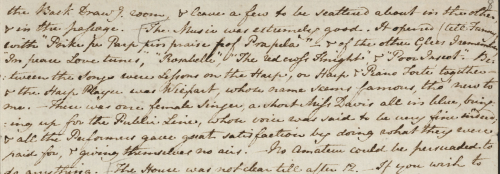 the Back Drawg. room, & leave a few to be scattered about in the other,
& in the passage. — The Music was extremely good. It opened (tell Fanny)
with "Poike pe Parp pirs praise pof Prapela" — & of the other Glees I remember
"In peace Love tunes," "Rosabelle," "The red cross Knight," & "Poor Insect." Be-
-tween the Songs were Lessons on the Harp, or Harp & Piano Forte together —
& the Harp Player was Wiepart, whose name seems famous, tho' new to
me. — There was one female Singer, a short Miss Davis all in blue, bring-
-ing up for the Public Line, whose voice was said to be very fine indeed;
& all the Performers gave great satisfaction by doing what they were
paid for, & giving themselves no airs. — No Amateur could be persuaded to
do anything. — The House was not clear till after 12. — If you wish to